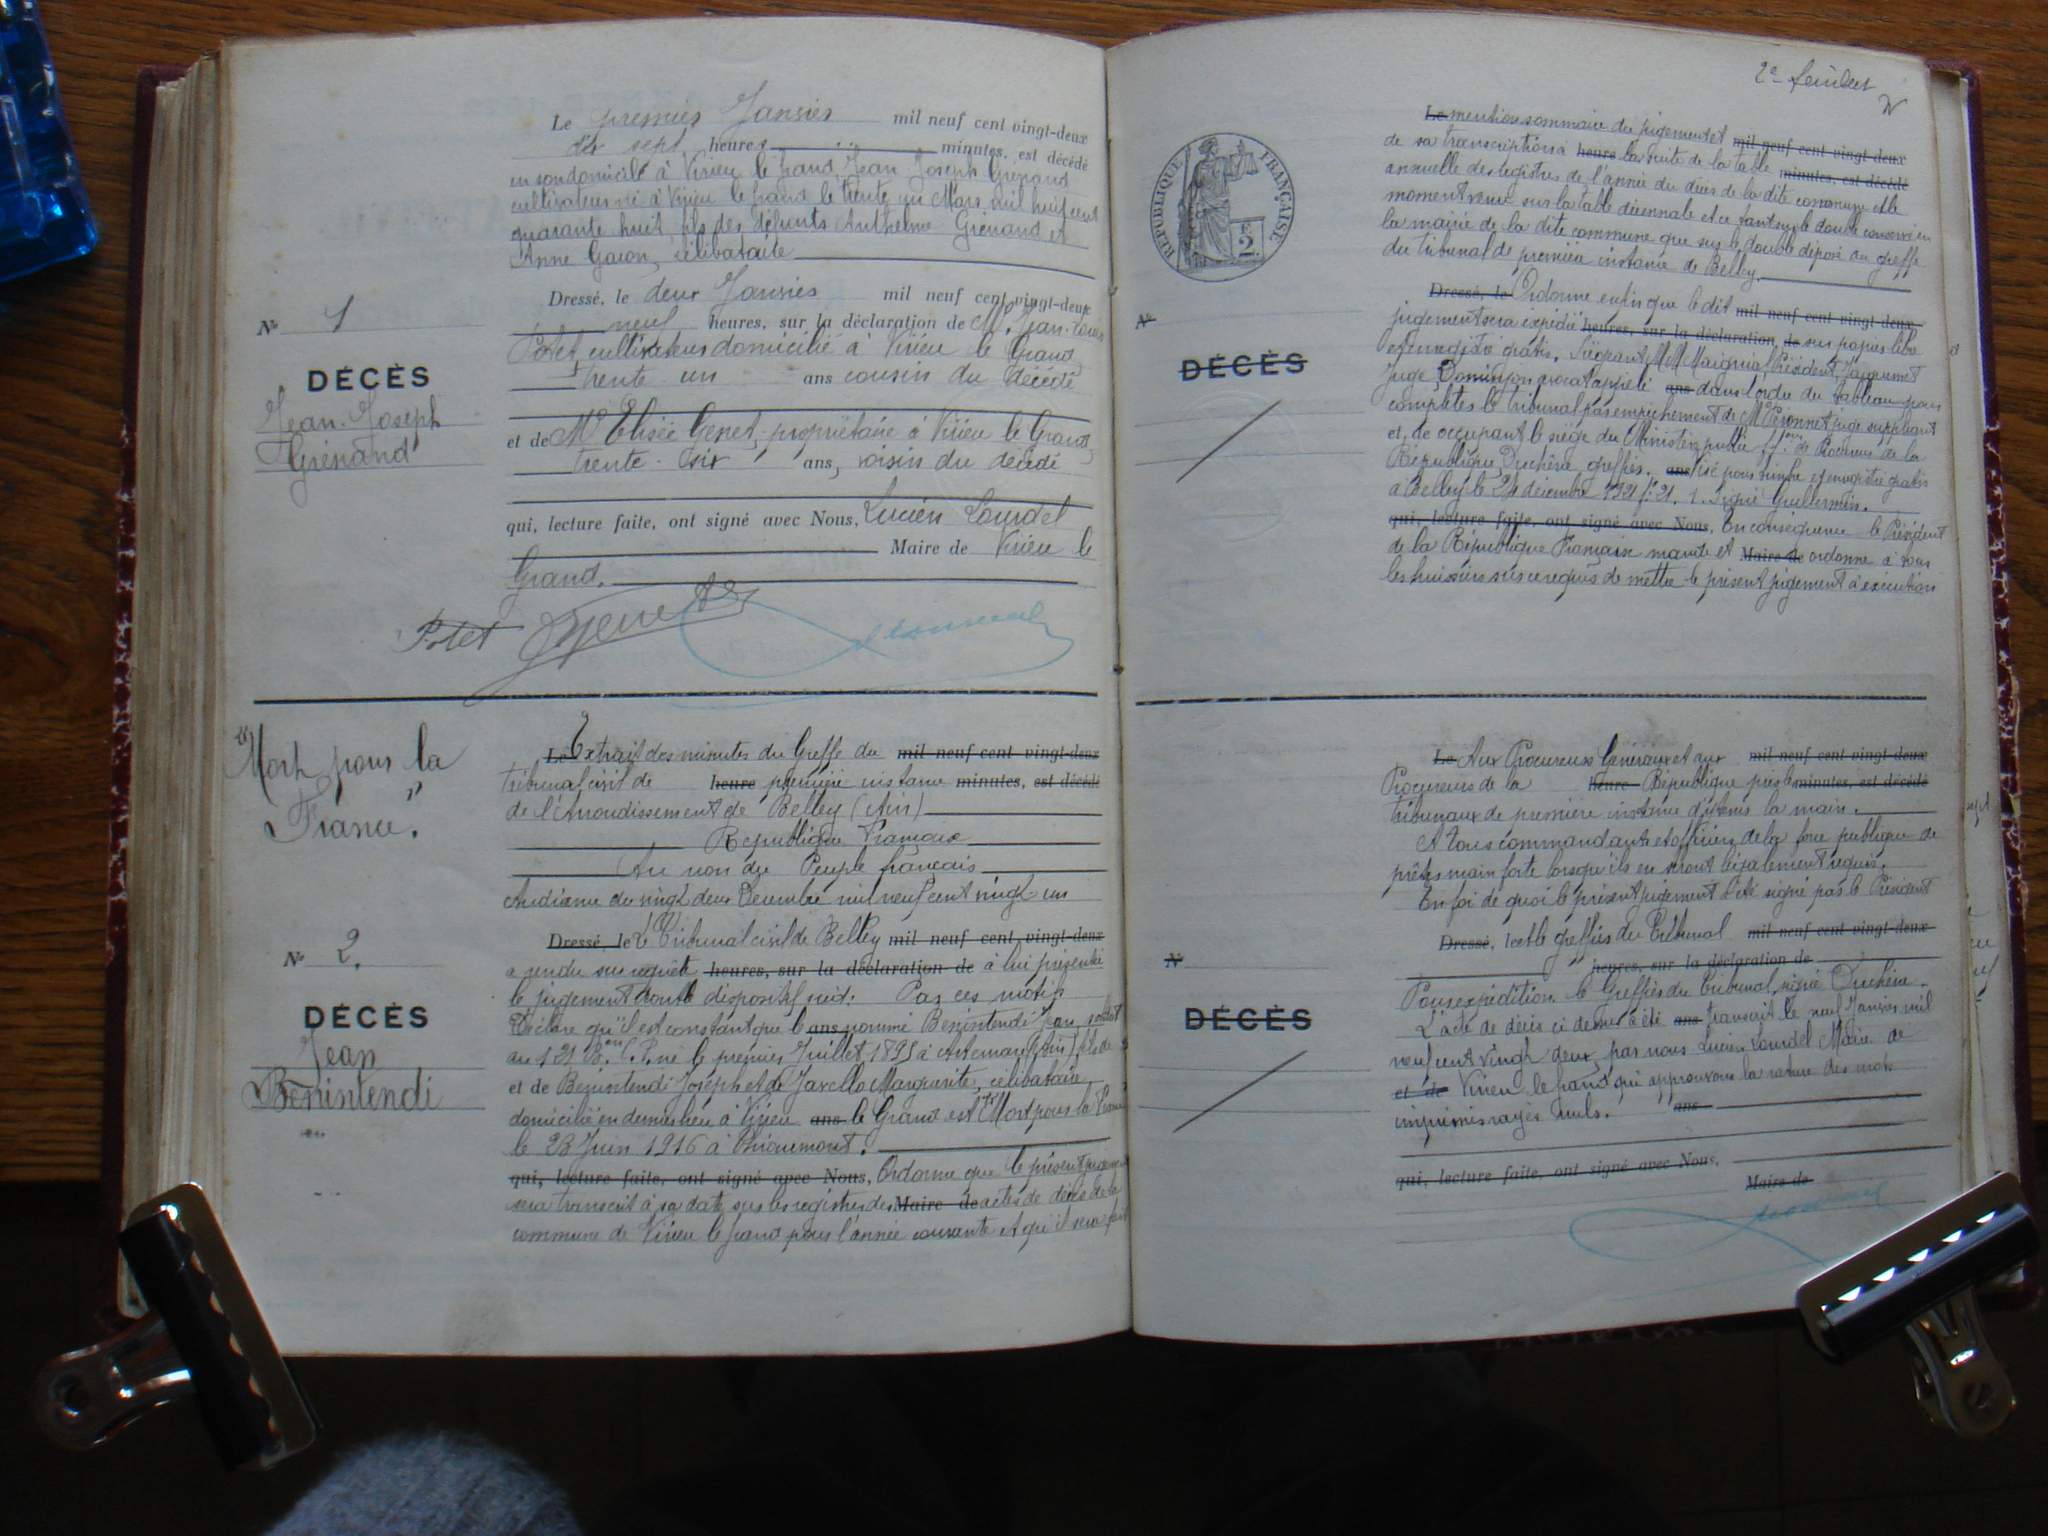 Le premier Janvier mil neuf cent vingt-deux
dix sept heures minutes, est décédé
en son domicile à Virieu le Grand, Jean Joseph Grenand
cultivateur né à Virieu le Grand le trente un Mars mil huit cent
quarante huit, fils des défunts Anthelme Grenand et
Anne Garon, célibataire
Nº 1
DÉCÈS
Jean-Joseph
Grenand
Dressé, le deux Janvier mil neuf cent vingt-deux
neuf heures, sur la déclaration de Mr Jean-Louis
Potet, cultivateur domicilié à Virieu le Grand,
trente un ans cousin du décédé
et de Mr Elisée Genet, propriétaire à Virieu le Grand,
trente-six ans, voisin du décédé
qui, lecture faite, ont signé avec Nous, Lucien Lourdel
Maire de Virieu le
Grand.
Potet Genet
"Mort pour la
France."
Nº 2.
DÉCÈS
Jean
Benintendi
Le Extrait des minutes du Greffe du mil neuf cent vingt-deux
tribunal civil de heure première instance minutes, est décédé
de l'Arrondissement de Belley (Ain)
République Française
Au nom du Peuple français
Audience du vingt deux Décembre mil neuf cent vingt un
Dressé, le Le Tribunal civil de Belley mil neuf cent vingt-deux
a rendu sur requête heures, sur la déclaration de à lui présentée
le jugement dont le dispositif suit: Par ces motifs
Déclare qu'il est constant que le ans nommé Benintendi Jean, soldat
au 121 B.on C.P. né le premier Juillet 1895 à Artemare (Ain) fils de
et de Benintendi Joseph et de Javello Marguerite, célibataire,
domicilié en dernier lieu à Virieu ans le Grand est "Mort pour la France"
le 23 Juin 1916 à Thiaumont.
qui, lecture faite, ont signé avec Nous, Ordonne que le présent jugement
sera transcrit à sa date sur les registres des Maire de actes de décès de la
commune de Virieu le Grand pour l'année courante et qu'il sera fait
2e feuillet
RÉPUBLIQUE FRANÇAISE
2
Le mention sommaire du jugement et mil neuf cent vingt-deux
de sa transcription à heure la suite de la table minutes, est décédé
annuelle des registres de l'année du décès de la dite commune et le
moment venu sur la table décennale et ce tant sur le double conservé en
la mairie de la dite commune que sur le double déposé au greffe
du tribunal de première instance de Belley
Nº
DÉCÈS
Dressé, le Ordonne enfin que le dit mil neuf cent vingt-deux
jugement sera expédié heures, sur la déclaration de sur papier libre
et enregistré gratis. Siégeant MM Président,
Juge, avocat appelé ans dans l'ordre du tableau pour
compléter le tribunal par empêchement de Mr Peronnet juge suppléant
et, de occupant le siège du Ministère public ff.ons de Procureur de la
République, Duchêne, greffier. ans Visé pour timbre et enregistré gratis
à Belley le 24 décembre 1921 fº 21. Signé Guillermin.
qui, lecture faite, ont signé avec Nous, En conséquence le Président
de la République Française mande et Maire de ordonne à tous
les huissiers sur ce requis de mettre le présent jugement à exécution
Le Aux Procureurs Généraux et aux mil neuf cent vingt-deux
Procureurs de la heure République près les minutes, est décédé
tribunaux de première instance d'y tenir la main.
A tous commandants et officiers de la force publique de
prêter main forte lorsqu'ils en seront légalement requis.
En foi de quoi le présent jugement a été signé par le Président
Nº
DÉCÈS
Dressé, le et le greffier du Tribunal mil neuf cent vingt-deux
heures, sur la déclaration de
Pour expédition le Greffier du Tribunal, signé Duchêne.
L'acte de décès ci dessus a été ans transcrit le neuf Janvier mil
neuf cent vingt deux, par nous Lucien Lourdel Maire de
et de Virieu le Grand qui approuvons la rature des mots
imprimés rayés nuls. ans
qui, lecture faite, ont signé avec Nous,
Maire de